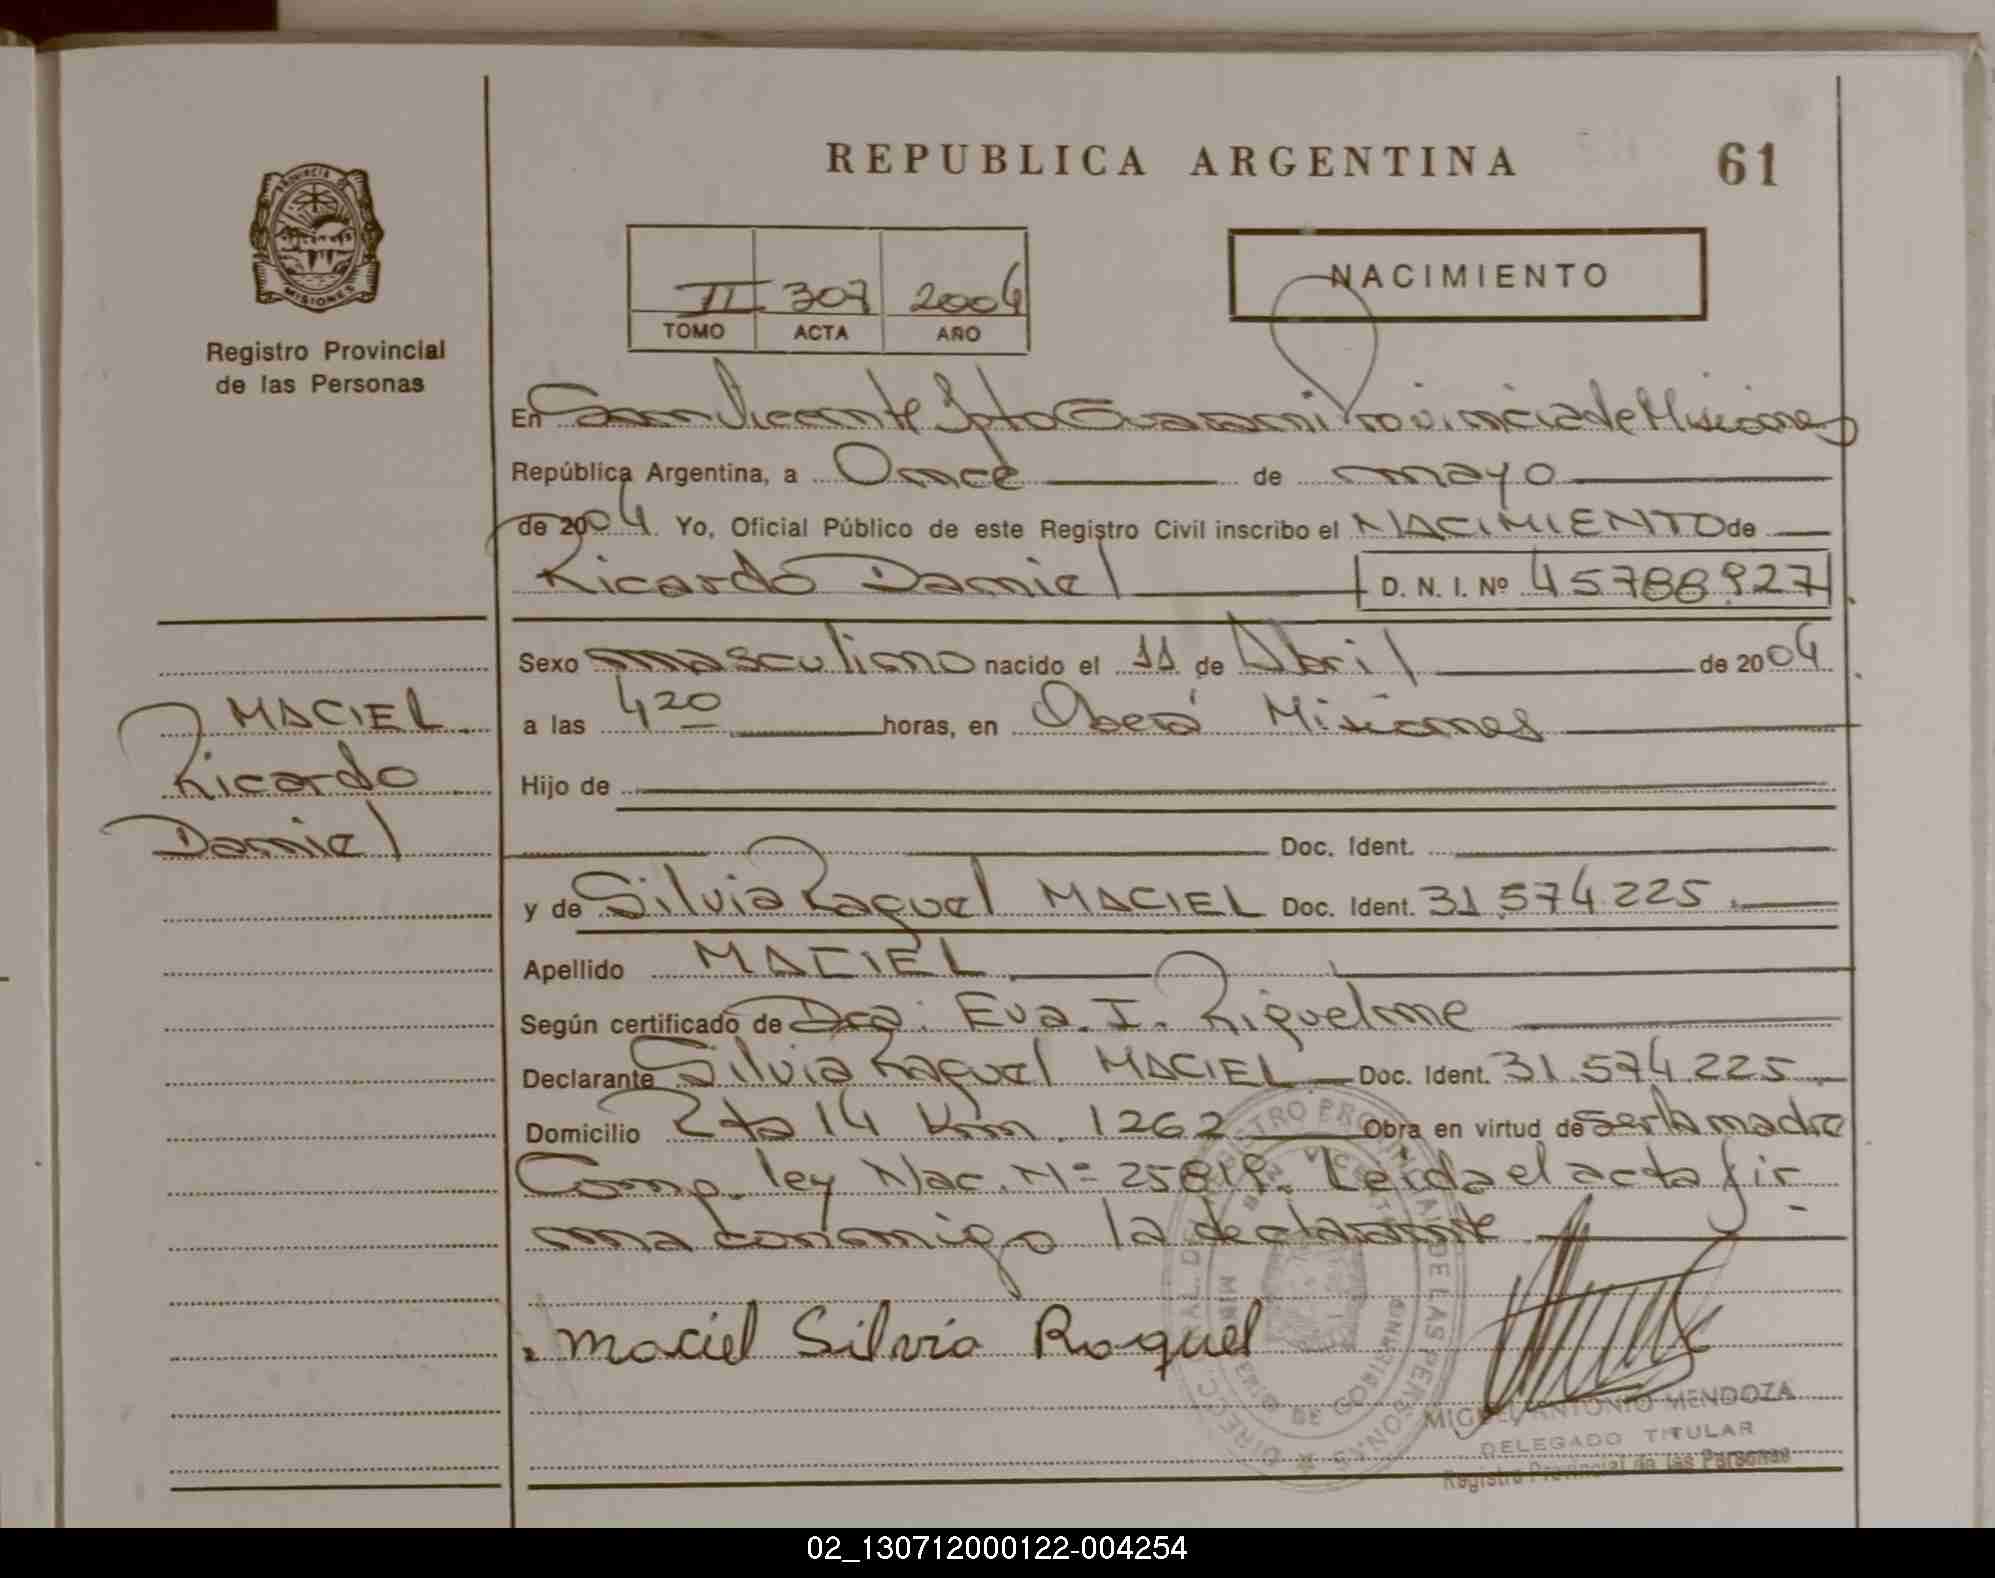 REPUBLICA ARGENTINA
61
PROVINCIA DE
MISIONES
Registro Provincial
de las Personas
II 307 2004
TOMO ACTA AÑO
NACIMIENTO
En San Vicente Dpto Guaraní Provincia de Misiones
República Argentina, a Once de mayo
de 2004 Yo, Oficial Público de este Registro Civil inscribo el NACIMIENTO de
Ricardo Daniel D. N. I. Nº 45788927
Sexo masculino nacido el 11 de Abril de 2004
a las 4 20 horas, en Oberá Misiones
Hijo de
Doc. Ident.
y de Silvia Raquel MACIEL Doc. Ident. 31.574.225
Apellido MACIEL
Según certificado de Dra. Eva. I. Riquelme
Declarante Silvia Raquel MACIEL Doc. Ident. 31.574.225
Domicilio Rta 14 Km. 1262 Obra en virtud de ser la madre
Comp. ley Nac. Nº 25819. Leída el acta fir-
ma conmigo la declarante
Maciel Silvia Raquel
MACIEL
Ricardo
Daniel
MIGUEL ANTONIO MENDOZA
DELEGADO TITULAR
Registro Provincial de las Personas
02_130712000122-004254